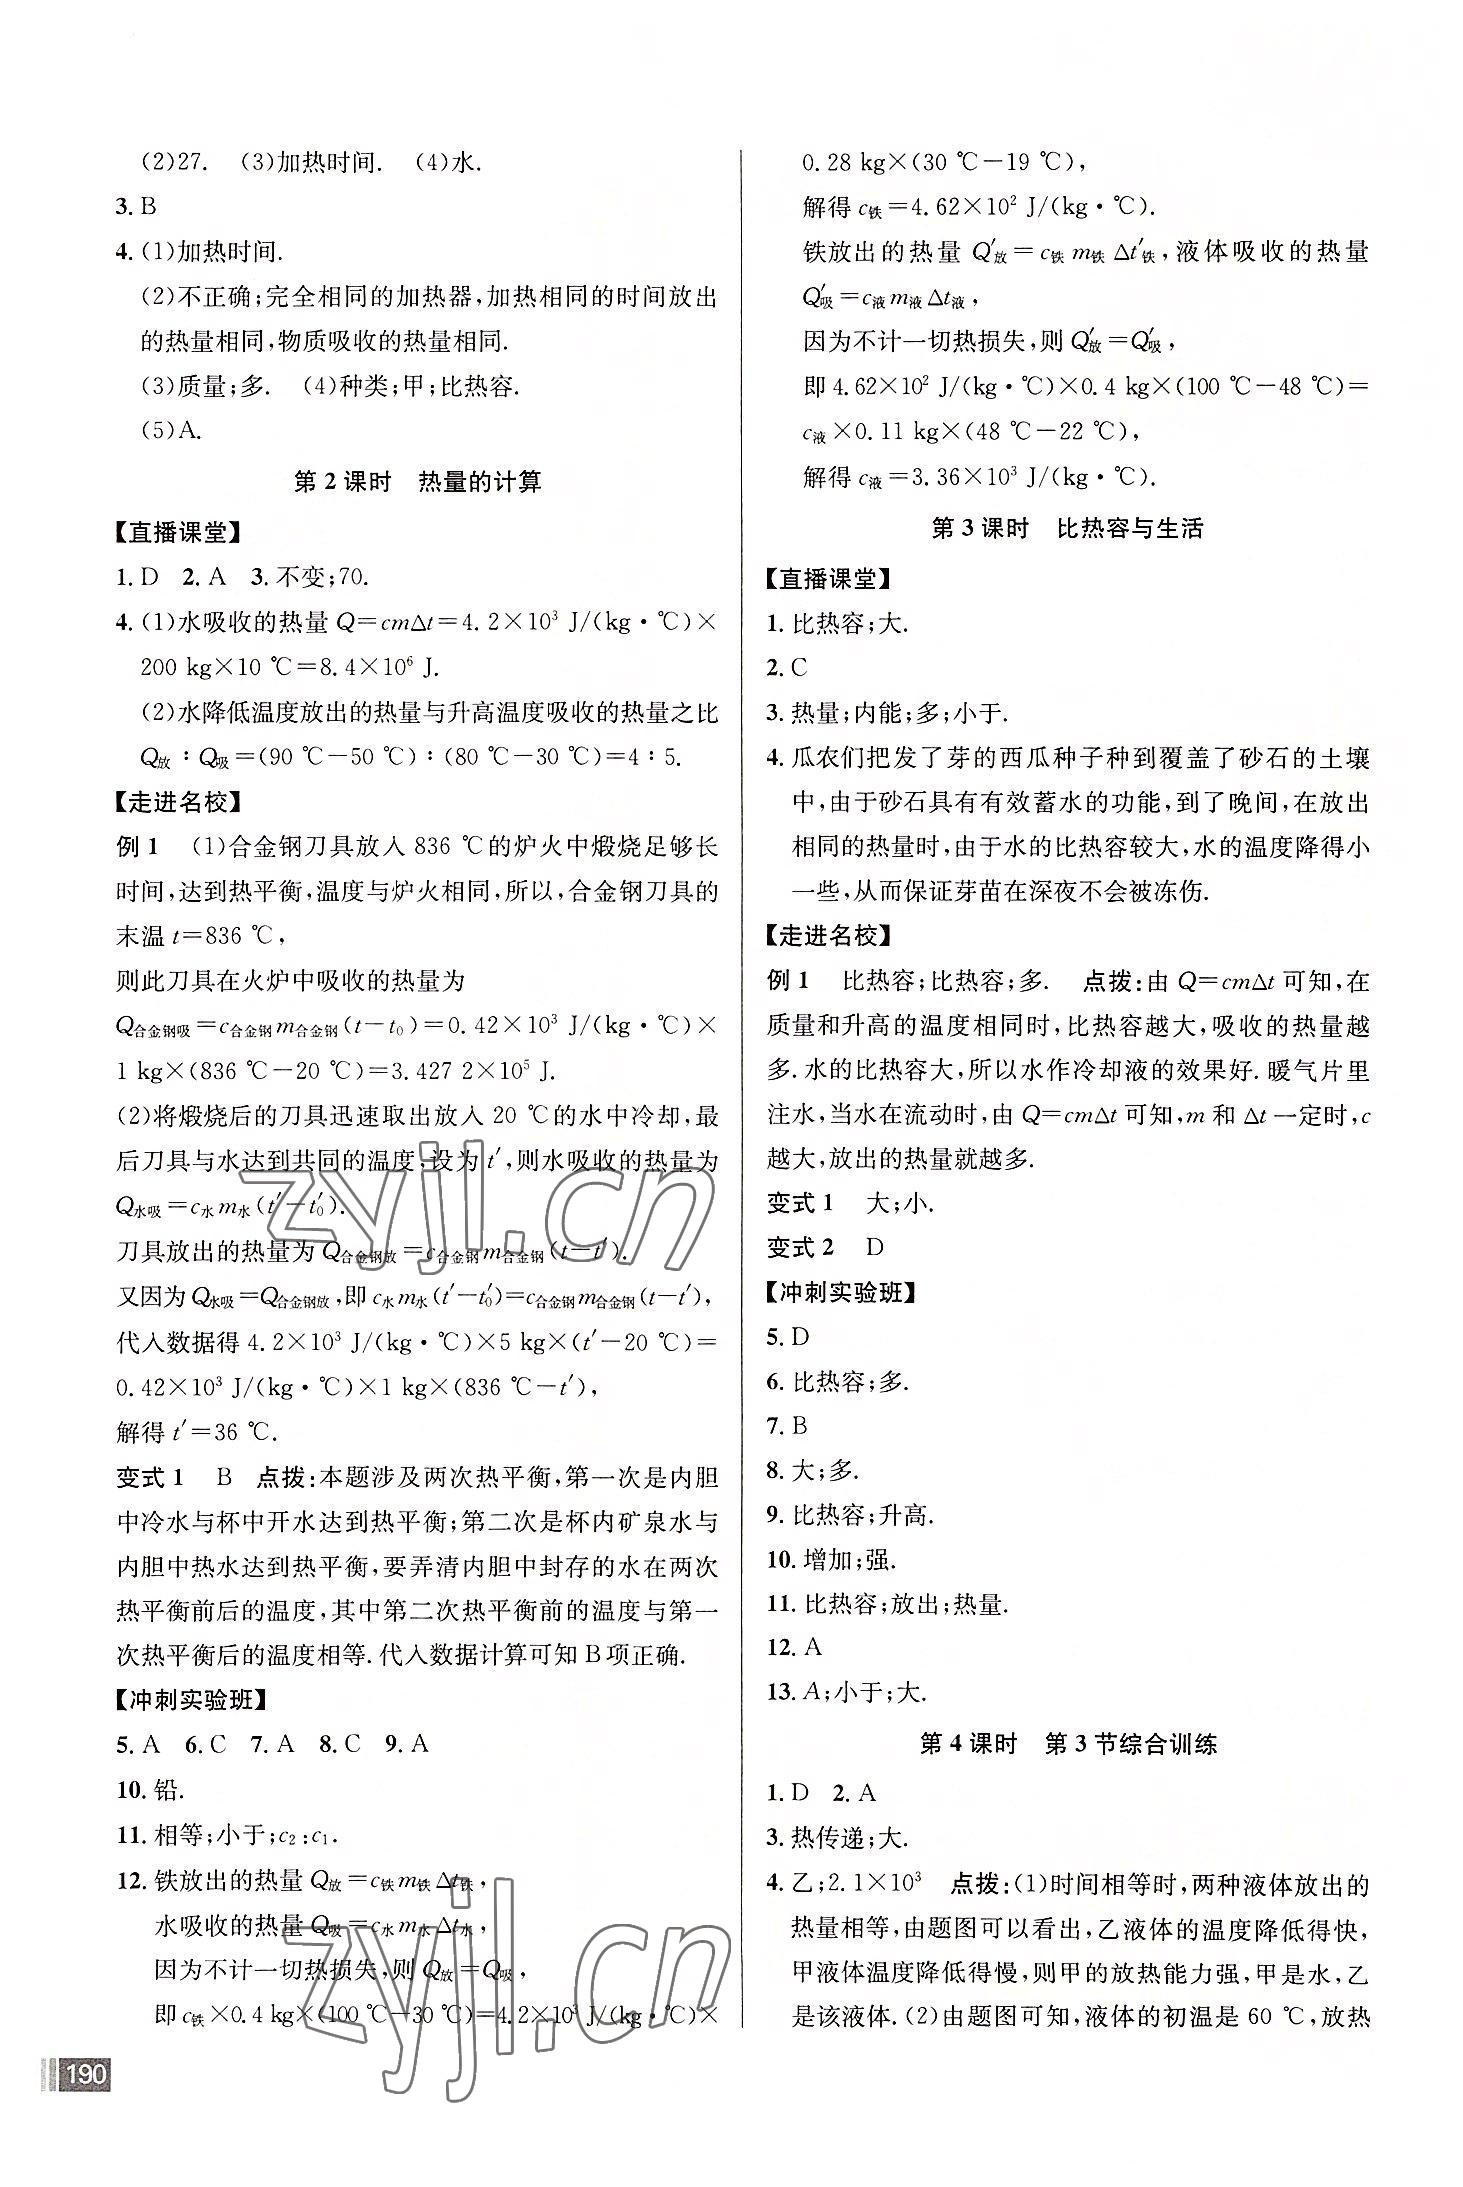 (2)27. (3)加热时间. (4)水.
3. B
4. (1)加热时间.
(2)不正确;完全相同的加热器,加热相同的时间放出
的热量相同,物质吸收的热量相同.
(3)质量;多. (4)种类;甲;比热容.
(5)A.
第 2 课时 热量的计算
【直播课堂】
1. D 2. A 3. 不变;70.
4. (1)水吸收的热量 Q=cmΔt=4.2×10³ J/(kg·℃)×
200 kg×10 ℃=8.4×10⁶ J.
(2)水降低温度放出的热量与升高温度吸收的热量之比
Q放∶Q吸=(90 ℃-50 ℃)∶(80 ℃-30 ℃)=4∶5.
【走进名校】
例 1 (1)合金钢刀具放入 836 ℃的炉火中煅烧足够长
时间,达到热平衡,温度与炉火相同,所以,合金钢刀具的
末温 t=836 ℃,
则此刀具在火炉中吸收的热量为
Q合金钢吸=c合金钢m合金钢(t-t₀)=0.42×10³ J/(kg·℃)×
1 kg×(836 ℃-20 ℃)=3.427 2×10⁵ J.
(2)将煅烧后的刀具迅速取出放入 20 ℃的水中冷却,最
后刀具与水达到共同的温度,设为 t′,则水吸收的热量为
Q水吸=c水m水(t′-t₀′).
刀具放出的热量为 Q合金钢放=c合金钢m合金钢(t-t′).
又因为 Q水吸=Q合金钢放,即 c水m水(t′-t₀′)=c合金钢m合金钢(t-t′),
代入数据得 4.2×10³ J/(kg·℃)×5 kg×(t′-20 ℃)=
0.42×10³ J/(kg·℃)×1 kg×(836 ℃-t′),
解得 t′=36 ℃.
变式 1 B 点拨:本题涉及两次热平衡,第一次是内胆
中冷水与杯中开水达到热平衡;第二次是杯内矿泉水与
内胆中热水达到热平衡,要弄清内胆中封存的水在两次
热平衡前后的温度,其中第二次热平衡前的温度与第一
次热平衡后的温度相等.代入数据计算可知 B 项正确.
【冲刺实验班】
5. A 6. C 7. A 8. C 9. A
10. 铅.
11. 相等;小于;c₂:c₁.
12. 铁放出的热量 Q放=c铁m铁Δt铁,
水吸收的热量 Q吸=c水m水Δt水,
因为不计一切热损失,则 Q放=Q吸,
即 c铁×0.4 kg×(100 ℃-30 ℃)=4.2×10³ J/(kg·℃)×
190
0.28 kg×(30 ℃-19 ℃),
解得 c铁=4.62×10² J/(kg·℃).
铁放出的热量 Q′放=c铁m铁Δt′铁,液体吸收的热量
Q′吸=c液m液Δt液,
因为不计一切热损失,则 Q′放=Q′吸,
即 4.62×10² J/(kg·℃)×0.4 kg×(100 ℃-48 ℃)=
c液×0.11 kg×(48 ℃-22 ℃),
解得 c液=3.36×10³ J/(kg·℃).
第 3 课时 比热容与生活
【直播课堂】
1. 比热容;大.
2. C
3. 热量;内能;多;小于.
4. 瓜农们把发了芽的西瓜种子种到覆盖了砂石的土壤
中,由于砂石具有有效蓄水的功能,到了晚间,在放出
相同的热量时,由于水的比热容较大,水的温度降得小
一些,从而保证芽苗在深夜不会被冻伤.
【走进名校】
例 1 比热容;比热容;多. 点拨:由 Q=cmΔt 可知,在
质量和升高的温度相同时,比热容越大,吸收的热量越
多.水的比热容大,所以水作冷却液的效果好.暖气片里
注水,当水在流动时,由 Q=cmΔt 可知,m 和 Δt 一定时,c
越大,放出的热量就越多.
变式 1 大;小.
变式 2 D
【冲刺实验班】
5. D
6. 比热容;多.
7. B
8. 大;多.
9. 比热容;升高.
10. 增加;强.
11. 比热容;放出;热量.
12. A
13. A;小于;大.
第 4 课时 第 3 节综合训练
1. D 2. A
3. 热传递;大.
4. 乙;2.1×10³ 点拨:(1)时间相等时,两种液体放出的
热量相等,由题图可以看出,乙液体的温度降低得快,
甲液体温度降低得慢,则甲的放热能力强,甲是水,乙
是该液体.(2)由题图可知,液体的初温是 60 ℃,放热
zyjl.cn
zyjl.cn